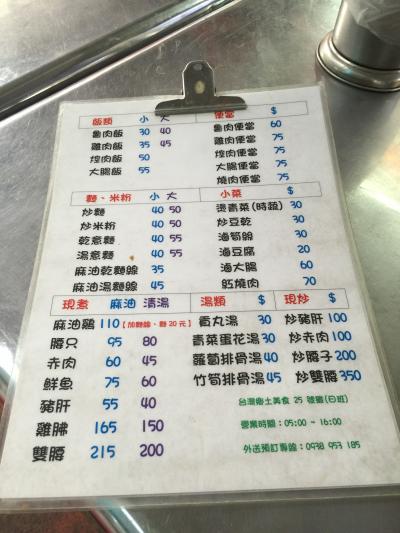 飯類 小 大 便當 $
魯肉飯 30 40 魯肉便當 60
雞肉飯 35 45 雞肉便當 75
焢肉飯 50 焢肉便當 75
大腸飯 55 大腸便當 75
燒肉便當 75
麵、米粉 小 大 小菜 $
炒麵 40 50 燙青菜(時蔬) 30
炒米粉 40 50 炒豆乾 30
乾意麵 40 55 海筍絲 30
湯意麵 40 55 滷豆腐 20
麻油乾麵線 35 滷大腸 60
麻油湯麵線 45 紅燒肉 70
現煮 麻油 清湯 湯類 $ 現炒 $
麻油雞 110【加麵線、麵20元】 貢丸湯 30 炒豬肝 100
腰只 95 80 青菜蛋花湯 30 炒赤肉 100
赤肉 60 45 蘿蔔排骨湯 40 炒腰子 200
鮮魚 75 60 竹筍排骨湯 45 炒雙腰 350
豬肝 55 40 台灣鄉土美食 25 號攤(日班)
雞腆 165 150 營業時間：05:00 ~ 16:00
雙腰 215 200 外送預訂專線：0938 953 185